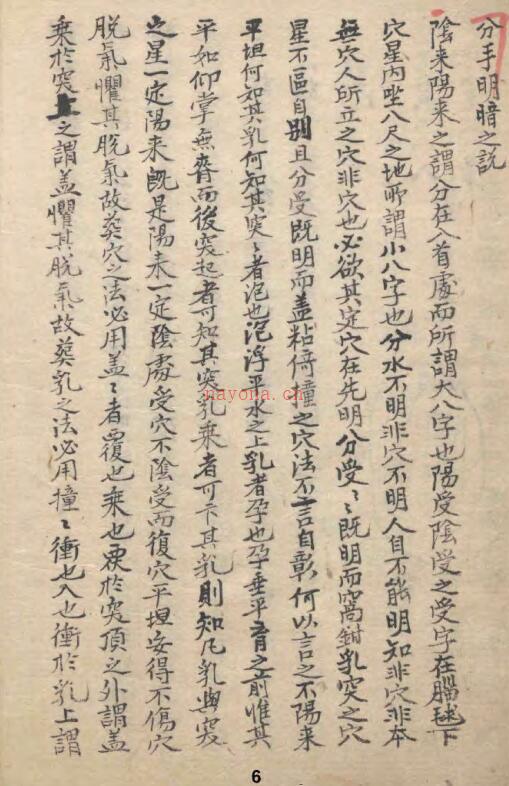 分手明暗之説
陰来陽来之謂分在入首處而所謂大八字也陽受陰受之受字在腦毬下
穴星内坐八尺之地所謂小八字也分水不明非穴不明人自不能明知非穴非本
無穴人所立之穴非穴也必欲其定穴在先明分受〻既明而窩鉗乳突之穴
星不區自別且分受既明而盖粘倚撞之穴法不言自彰何以言之不陽来
平坦何如其乳何知其突〻者泡也泡浮平水之上乳者孕也孕垂平育之前惟其
平如仰掌無脊而後突起者可知其突乳乘者可下其乳則知凡乳與突
之星一定陽来既是陽来一定陰處受穴不陰受而復穴平坦安得不傷穴
脱氣懼其脱氣故葬穴之法必用盖〻者覆也乘也覆於突頂之外謂盖
乘於突上之謂盖懼其脱氣故葬乳之法必用撞〻衝也入也衝於乳上謂
nayona.cn
6